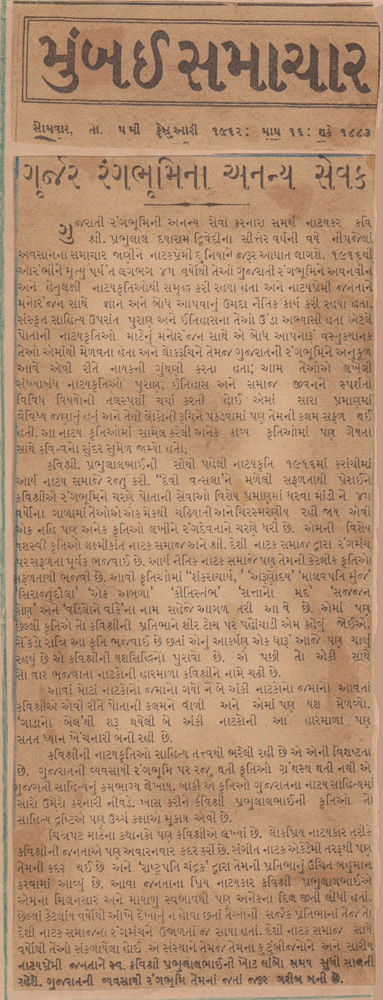 મુંબઈ સમાચાર
સોમવાર, તા. ૫ મી ફેબ્રુઆરી ૧૯૬૨: માઘ ૧૬: શકે ૧૮૮૩
ગૂર્જર રંગભૂમિના અનન્ય સેવક
ગુજરાતી રંગભૂમિની અનન્ય સેવા કરનારા સમર્થ નાટ્યકાર કવિ
શ્રી. પ્રભુલાલ દયારામ દ્વિવેદીના સીત્તેર વર્ષની વયે નીપજેલા
અવસાનના સમાચાર જાણીને નાટકપ્રેમી દુનિયાને જરૂર આઘાત લાગશે. ૧૯૧૬થી
આરંભીને મૃત્યુ પર્યંત લગભગ ૪૫ વર્ષોથી તેઓ ગુજરાતી રંગભૂમિને અવનવીન
અને હેતુલક્ષી નાટ્યકૃતિઓથી સમૃદ્ધ કરી રહયા હતા અને નાટ્યપ્રેમી જનતાને
મનોરંજન સાથે જ્ઞાન અને બોધ આપવાનું ઉમદા નૈતિક કાર્ય કરી રહયા હતા.
સંસ્કૃત સાહિત્ય ઉપરાંત પુરાણ અને ઈતિહાસના તેઓ ઉંડા અભ્યાસી હતા એટલે
પોતાની નાટ્યકૃતિઓ માટેનું મનોરંજન સાથે એ બોધ આપનારૂં વસ્તુકથાનક
તેઓ એમાંથી મેળવતા હતા અને લોકરૂચિને તેમજ ગુજરાતની રંગભૂમિને અનુકૂળ
આવે એવી રીતે નાયકની ગુંથણી કરતા હતા; આમ તેઓએ લખેલી
સંખ્યાબંધ નાટ્યકૃતિઓ પુરાણ, ઈતિહાસ અને સમાજ જીવનને સ્પર્શતા
વિવિધ વિષયોની તલસ્પર્શી ચર્ચા કરતી હોઈ એમાં સારા પ્રમાણમાં
વૈવિધ્ય જણાતું હતું અને તેથી લોકોની રૂચિને પકડવામાં પણ તેમની કલમ સફળ થઈ
હતી. આ નાટય કૃતિઓમાં સામેલ કરેલી અનેક કાવ્ય કૃતિઓમાં પણ ગેયતા
સાથે કવિત્વનો સુંદર સુમેળ જામ્યો હતો.
કવિશ્રી. પ્રભુલાલભાઈની સૌથી પહેલી નાટ્યકૃતિ ૧૯૧૬માં કરાંચીમાં
આર્ય નાટ્ય સમાજે રજૂ કરી. “દેવી વત્સલા”ને મળેલી સફળતાથી પ્રેરાઈને
કવિશ્રીએ રંગભૂમિને ચરણે પોતાની સેવાઓ વિશેષ પ્રમાણમાં ધરવા માંડી ને ૪૫
વર્ષોના ગાળામાં તેઓએ એકમેકથી ચઢિયાતી અને ચિરસ્મરણીય રહી જાય એવી
એક નહિ પણ અનેક કૃતિઓ લખીને રંગદેવતાને ચરણે ધરી છે. એમની વિશેષ
યશસ્વી કૃતિઓ લક્ષ્મીકાંત નાટક સમાજ અને શ્રી. દેશી નાટક સમાજ દ્વારા રંગમંચ
પર સફળતા પૂર્વક ભજવાઈ છે. આર્ય નૈતિક નાટક સમાજે પણ તેમની કેટલીક કૃતિઓ
સફળતાથી ભજવી છે. આવી કૃતિઓમાં “શંકરાચાર્ય,' ‘અરૂણોદય' ‘માલવપતિ મુંજ’
‘સિરાજુદ્દૌલા' ‘એક અબળા' ‘કીર્તિસ્તંભ' ‘સત્તાનો મદ' ‘સજ્જન
કોણ' અને ‘વડિલોને વાંકે'ના નામ સહેજે આગળ તરી આવે છે. એમાં પણ
છેલ્લી કૃતિએ તો કવિશ્રીની પ્રતિભાને શીર ટોચ પર પહોંચાડી એમ કહેવું જોઈએ.
સેંકડો રાત્રિ આ કૃતિ ભજવાઈ છે છતાં એનું આકર્ષણ એક ધારૂં આજે પણ ચાલુ
રહયું છે એ કવિશ્રીની યશસિદ્ધિનો પુરાવો છે. એ પછી તો એકી સાથે
સો વાર ભજવાતા નાટકોની હારમાળા કવિશ્રીને નામે ચઢી છે.
આવાં મોટાં નાટકોનો જમાનો ગયો ને બે અંકી નાટકોનો જમાનો આવતાં
કવિશ્રીએ એવી રીતે પોતાની કલમને વાળી અને એમાં પણ યશ મેળવ્યો.
‘ગાડાનો બેલ'થી શરૂ થયેલી બે અંકી નાટકોની આ હારમાળા પણ
સતત ધ્યાન ખેંચનારી બની રહી છે.
કવિશ્રીની નાટ્યકૃતિઓ સાહિત્ય તત્ત્વથી ભરેલી રહી છે એ એની વિશિષ્ટતા
છે. ગુજરાતની વ્યવસાયી રંગભૂમિ પર રજૂ થતી કૃતિઓ ગ્રંથસ્થ થતી નથી એ
ગુજરાતી સાહિત્યનું કમભાગ્ય લેખાય. બાકી એ કૃતિઓ ગુજરાતના નાટ્ય સાહિત્યમાં
સારો ઉમેરો કરનારી નીવડે. ખાસ કરીને કવિશ્રી પ્રભુલાલભાઈની કૃતિઓ તો
સાહિત્ય દ્રષ્ટિએ પણ ઉચ્ચ કક્ષાએ મૂકાય એવી છે.
ચિત્રપટ માટેનાં કથાનકો પણ કવિશ્રીએ લખ્યાં છે. લોકપ્રિય નાટ્યકાર તરીકે
કવિશ્રીની જનતાએ પણ અવારનવાર કદર કરી છે. સંગીત નાટક એકેડેમી તરફથી પણ
તેમની કદર થઈ છે અને ‘રાષ્ટ્રપતિ ચંદ્રક’ દ્વારા તેમની પ્રતિભાનું ઉચિત બહુમાન
કરવામાં આવ્યું છે. આવા જનતાના પ્રિય નાટ્યકાર કવિશ્રી પ્રભુલાલભાઈએ
એમના મિલનસાર અને માયાળુ સ્વભાવથી પણ અનેકના દિલ જીતી લીધાં હતાં.
છેલ્લાં કેટલાંય વર્ષોથી આંખે દેખાતું ન હોવા છતાં તેઓની સર્જક પ્રતિભાનાં તેજ તો
દેશી નાટક સમાજના રંગમંચને ઉજાળતાં જ રહયાં હતાં. દેશી નાટક સમાજ સાથે
વર્ષોથી તેઓ સંકળાયેલા હોઈ એ સંસ્થાને તેમજ તેમના કુટુંબીજનોને અને સારીય
નાટયપ્રેમી જનતાને સ્વ. કવિશ્રી પ્રભુલાલભાઈની ખોટ લાંબો સમય સુધી સાલતી
રહેશે. ગુજરાતની વ્યવસાયી રંગભૂમિ તેમનાં જતાં જરૂર ગરીબ બની છે.